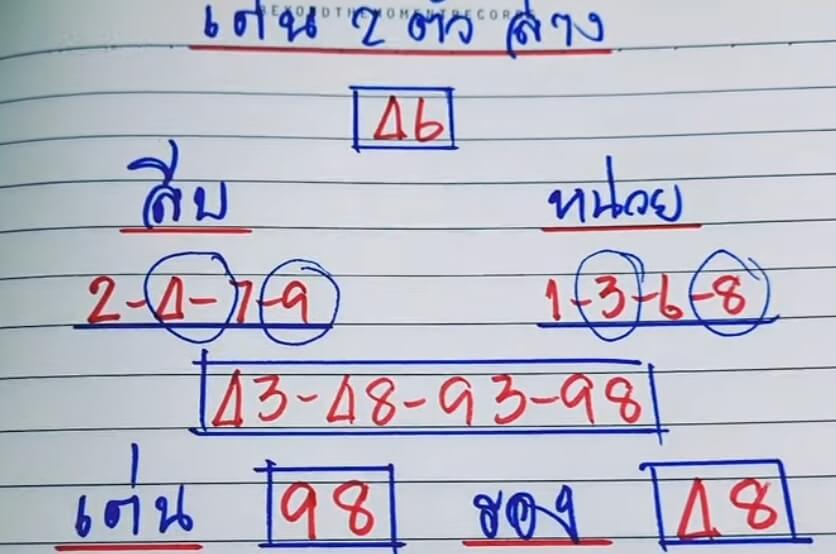 BEYONDTHEMOMENTRECORDS
เด่น 2 ตัว ล่าง
46
สิบ หน่วย
2-4-7-9 1-3-6-8
43-48-93-98
เด่น 98 รอง 48